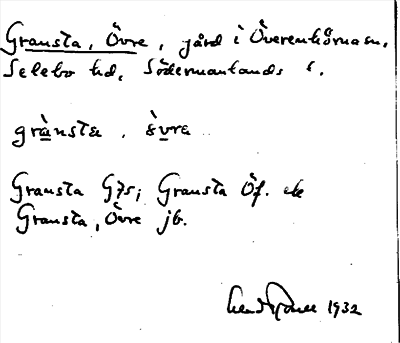 Gransta, Övre, gård i Överenhörna sn,
Selebo hd, Södermanlands l.
grànsta . ö̀vre
Gransta G7s; Gransta Öf. ek
Gransta, Övre jb.
1932